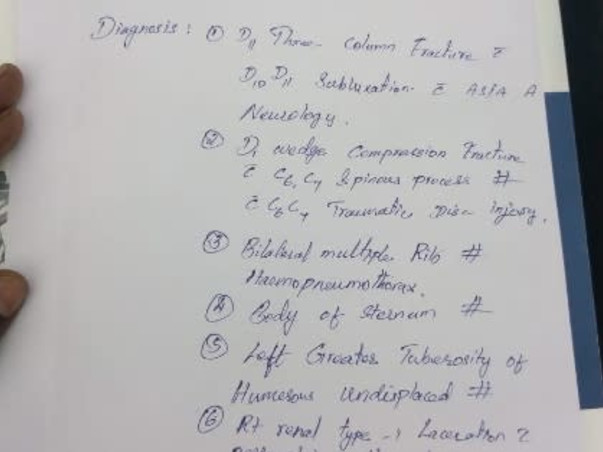 Diagnosis: ① D11 Three Column Fracture c̄
D10 D11 Subluxation c̄ ASIA A
Neurology.
② D1 wedge Compression Fracture
c̄ C6, C7 Spinous process #
c̄ C6 C7 Traumatic Disc injury.
③ Bilateral multiple Ribs #
Haemopneumothorax.
④ Body of Sternum #
⑤ Left Greater Tuberosity of
Humerous Undisplaced #.
⑥ Rt renal type - 1 Laceration c̄